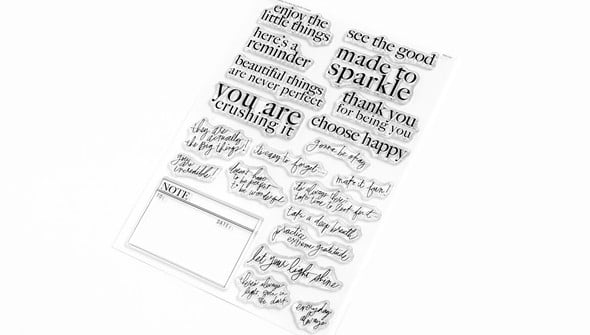 enjoy the
little things
see the good
here's a
reminder
made to
sparkle
beautiful things
are never perfect
thank you
for being you
you are
crushing it
choose happy
they are
actually
the big things!
gonna be okay
it's easy to forget
you're
incredible!
make it fun!
doesn't have
to be perfect
to be wonderful
it's always there
take time to look for it
take a deep breath
NOTE
TO:
DATE:
practice
extreme gratitude
let your light shine
there's always
light even in
the dark
everyday
always